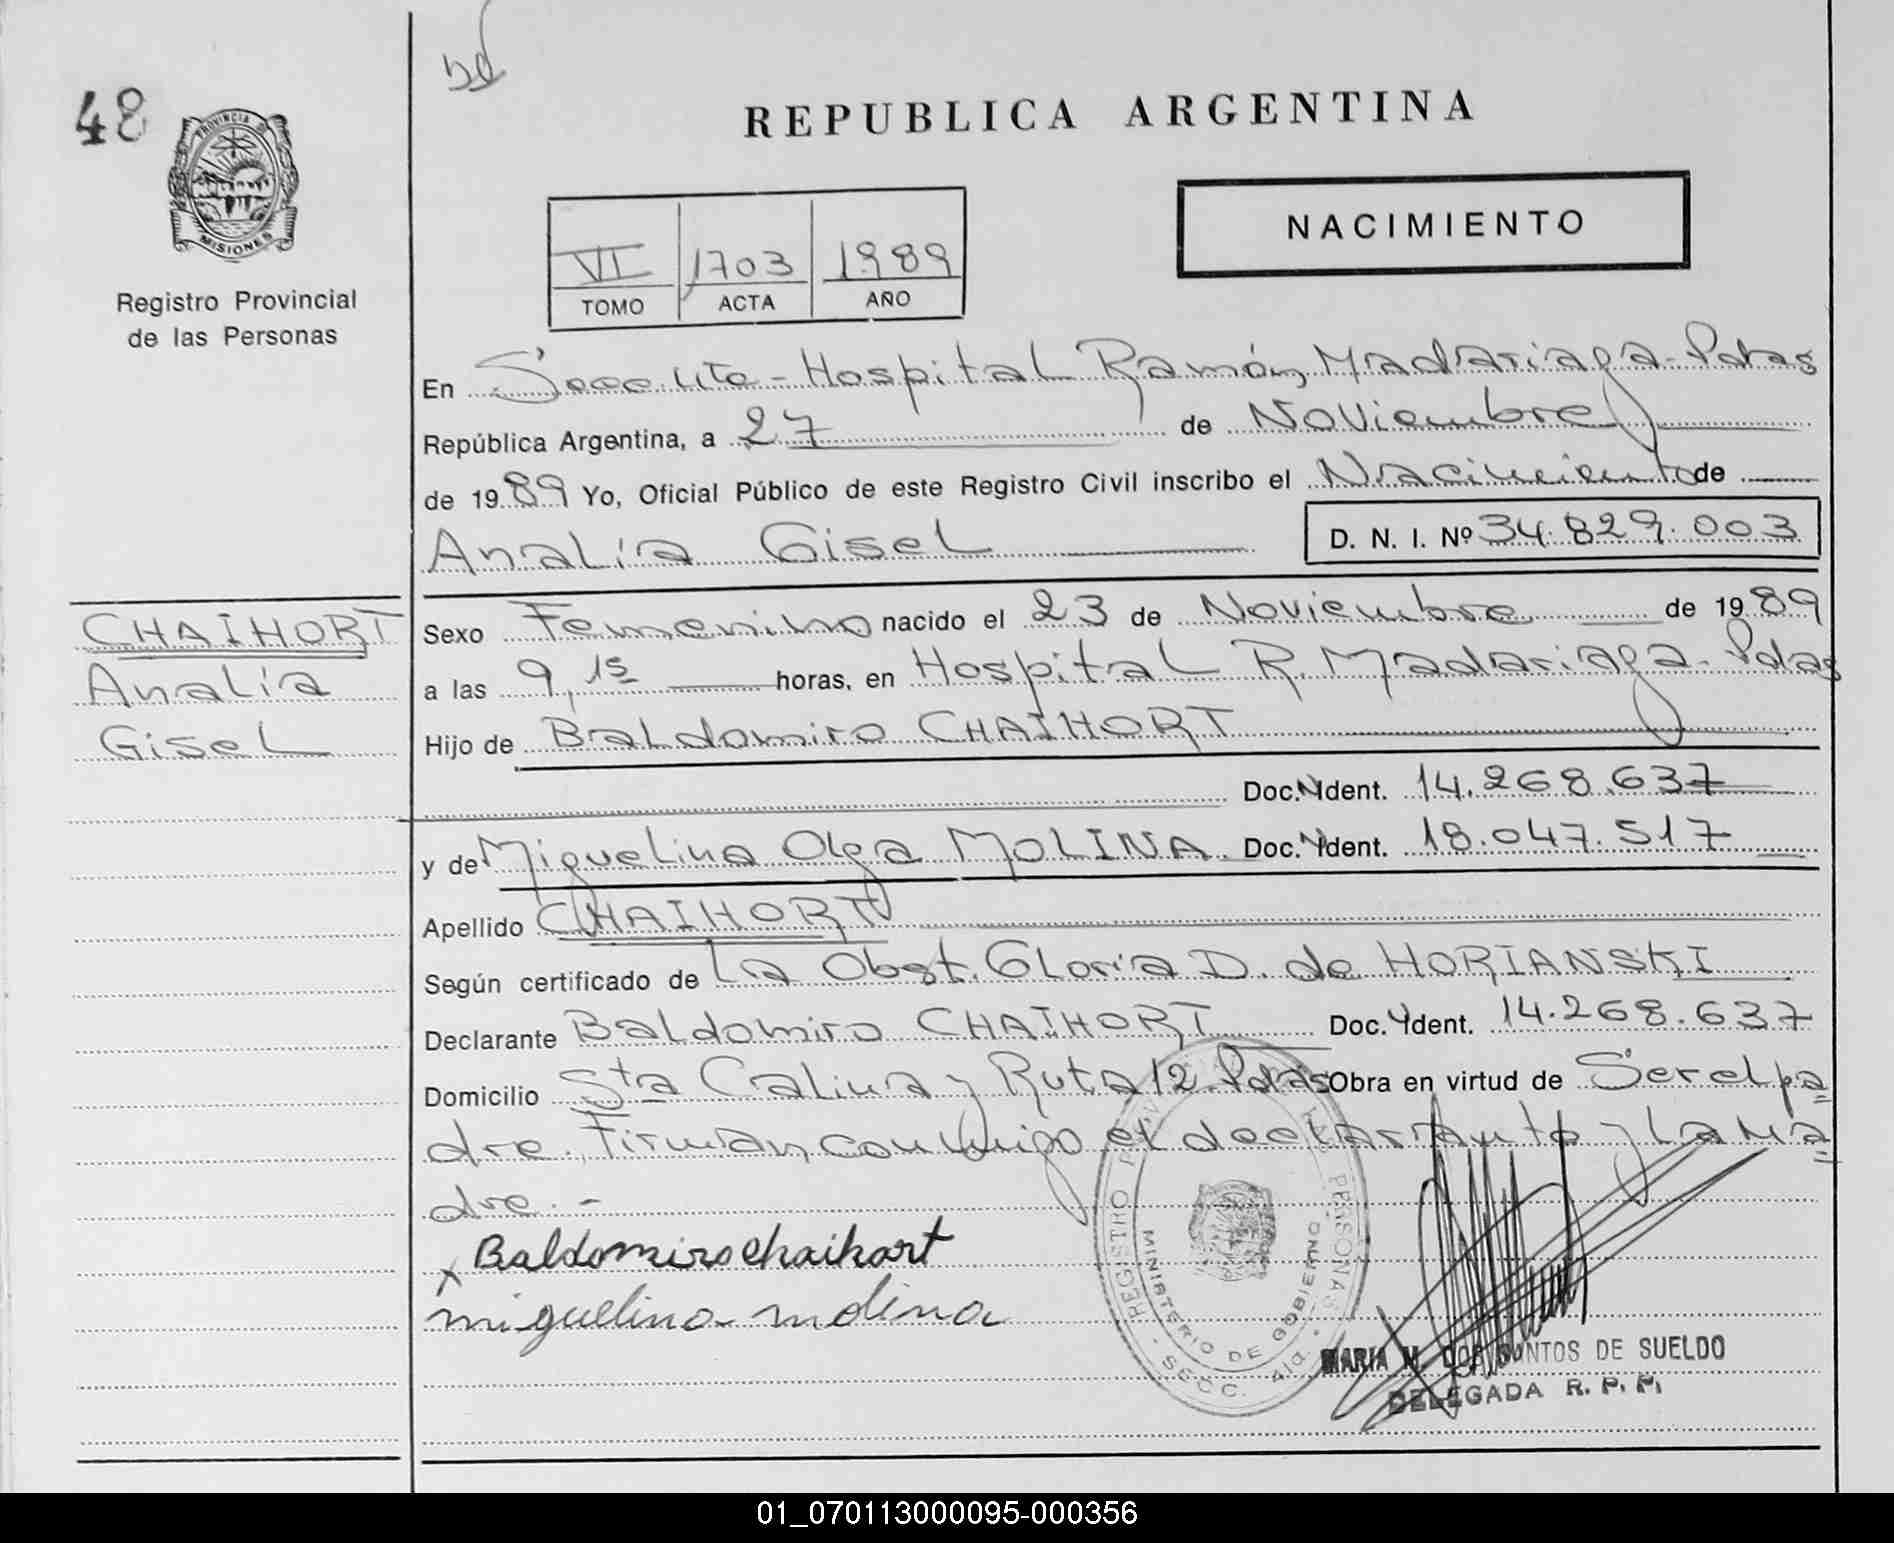 48
PROVINCIA DE
MISIONES
Registro Provincial
de las Personas
REPUBLICA ARGENTINA
NACIMIENTO
VI 1703 1989
TOMO ACTA AÑO
En Secc. 4ta - Hospital Ramón Madariaga - Pdas
República Argentina, a 27 de Noviembre
de 1989 Yo, Oficial Público de este Registro Civil inscribo el Nacimiento de
Analía Gisel D. N. I. Nº 34.829.003
CHAIHORT
Analía
Gisel
Sexo Femenino nacido el 23 de Noviembre de 1989
a las 9,15 horas, en Hospital R. Madariaga - Pdas
Hijo de Baldomiro CHAIHORT
Doc. Ident. 14.268.637
y de Miguelina Olga MOLINA. Doc. Ident. 18.047.517
Apellido CHAIHORT
Según certificado de La Obst. Gloria D. de HORIANSKI
Declarante Baldomiro CHAIHORT Doc. Ident. 14.268.637
Domicilio Sta Calina y Ruta 12 Pdas Obra en virtud de Ser el pa
dre. Firman conmigo el declarante y la ma
dre. -
x Baldomiro chaihort
miguelina molina
REGISTRO PROV. PERSONAS
MINISTERIO DE GOBIERNO
SECC. 4ta.
MARIA M. DOS SANTOS DE SUELDO
DELEGADA R. P. P.
01_070113000095-000356